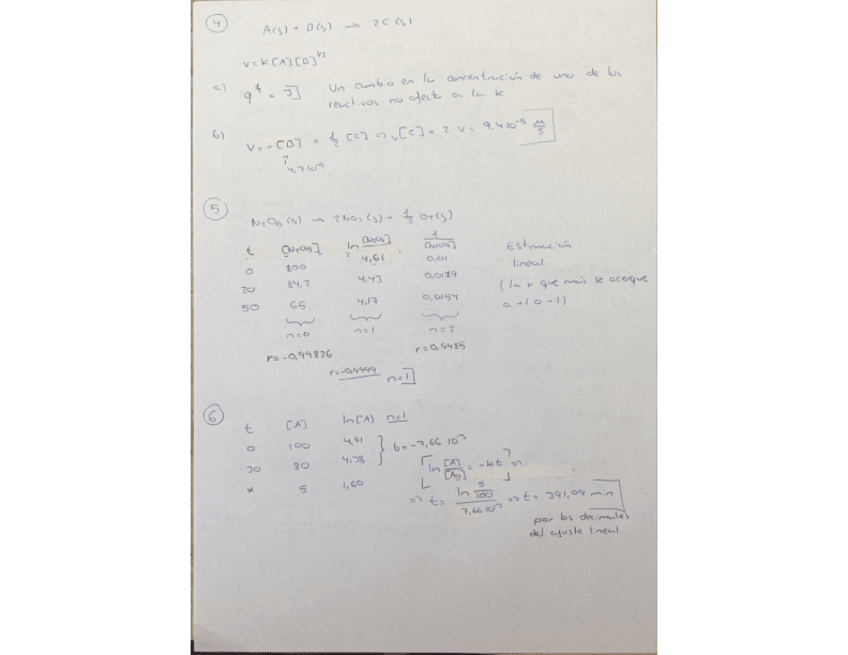 4
A(g) + B(g) → 2C(g)
v = k[A][B]^1/2
a) 9 = 3 Un cambio en la concentración de uno de los
reactivos no afecta a la k
b) v = -[B] = 1/2 [C] => v[C] = 2 v = 9,4·10^-5 M/s
↑
4,7·10^-5
5
N2O5(g) → 2NO2(g) + 1/2 O2(g)
t [N2O5] ln[N2O5] 1/[N2O5]
0 100 4,61 0,01
20 84,2 4,43 0,0119
50 65 4,17 0,0154
n=0 n=1 n=2
r=-0,99826 r=0,9985
r=-0,9999 n=1
Estimación
lineal
(la r que más se acerque
a +1 o -1)
6
t [A] ln[A] n=1
0 100 4,61
30 80 4,38
x 5 1,60
b = -7,66·10^-3
ln [A]/[A0] = -kt =>
=> t = ln 5/100 / 7,66·10^-3 => t = 391,09 min
por los decimales
del ajuste lineal